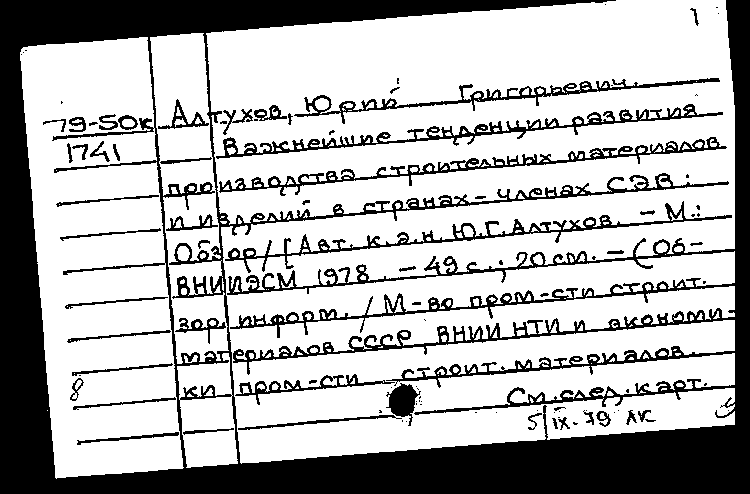 1
79-50к Алтухов, Юрий Григорьевич.
1741 Важнейшие тенденции развития
производства строительных материалов
и изделий в странах-членах СЭВ:
Обзор/[Авт. к.э.н. Ю.Г.Алтухов. – М.:
ВНИИЭСМ, 1978. – 49 с.; 20 см. – (Об-
зор. информ. / М-во пром-сти строит.
материалов СССР, ВНИИ НТИ и экономи-
8 ки пром-сти строит. материалов.
См. след. карт.
5/IX-79 АК